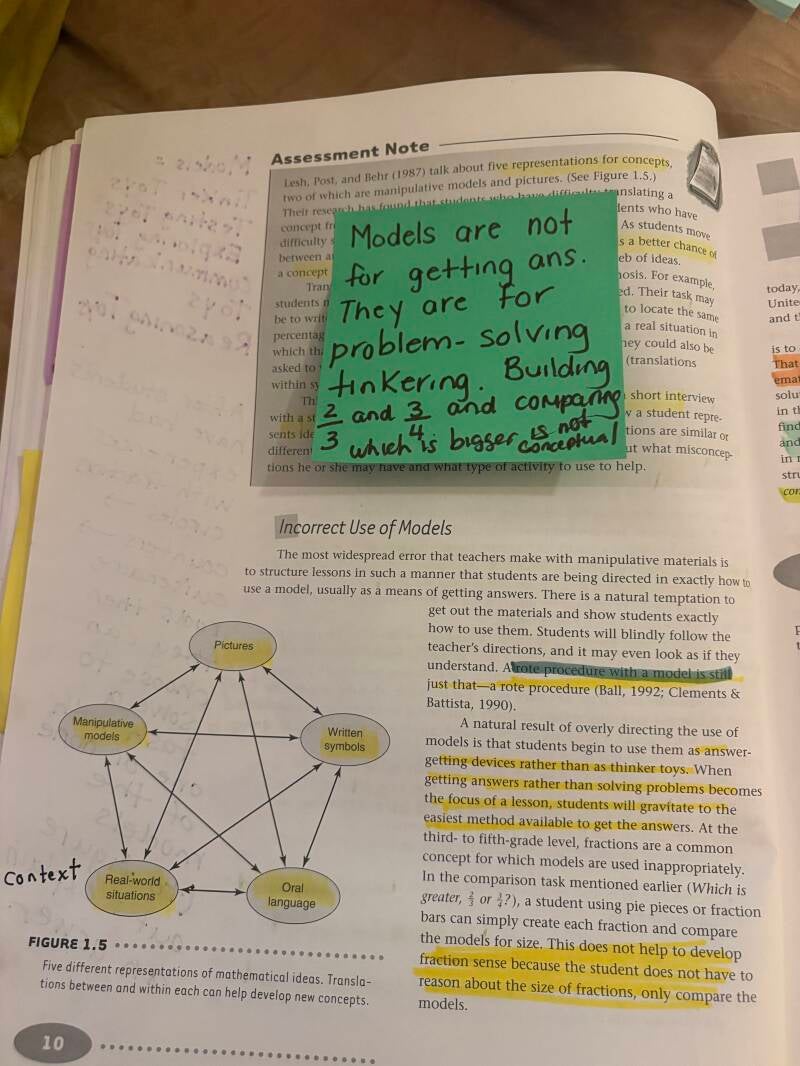 Assessment Note
Lesh, Post, and Behr (1987) talk about five representations for concepts,
two of which are manipulative models and pictures. (See Figure 1.5.)
Their research has found that students who have difficulty translating a
concept
difficulty
between
a concept
students who have
As students move
a better chance of
web of ideas.
For example,
Their task may
students
be to
to locate the same
percentage
a real situation in
which
they could also be
asked to
(translations
within
short interview
with a
a student repre-
sents
are similar or
different
what misconcep-
tions he or she may have and what type of activity to use to help.
Models are not
for getting ans.
They are for
problem-solving
tinkering. Building
2/3 and 3/4 and comparing
which is bigger is not
conceptual
Models =
Tinker Toys
Testing Toys
Toys
Reasoning Toys
Incorrect Use of Models
The most widespread error that teachers make with manipulative materials is
to structure lessons in such a manner that students are being directed in exactly how to
use a model, usually as a means of getting answers. There is a natural temptation to
get out the materials and show students exactly
how to use them. Students will blindly follow the
teacher's directions, and it may even look as if they
understand. A rote procedure with a model is still
just that—a rote procedure (Ball, 1992; Clements &
Battista, 1990).
A natural result of overly directing the use of
models is that students begin to use them as answer-
getting devices rather than as thinker toys. When
getting answers rather than solving problems becomes
the focus of a lesson, students will gravitate to the
easiest method available to get the answers. At the
third- to fifth-grade level, fractions are a common
concept for which models are used inappropriately.
In the comparison task mentioned earlier (Which is
greater, 2/3 or 3/4?), a student using pie pieces or fraction
bars can simply create each fraction and compare
the models for size. This does not help to develop
fraction sense because the student does not have to
reason about the size of fractions, only compare the
models.
Pictures
Manipulative
models
Written
symbols
Real-world
situations
Oral
language
context
FIGURE 1.5
Five different representations of mathematical ideas. Transla-
tions between and within each can help develop new concepts.
10
today,
Unite
and t
is to
That
emat
solu
in t
find
and
in
str